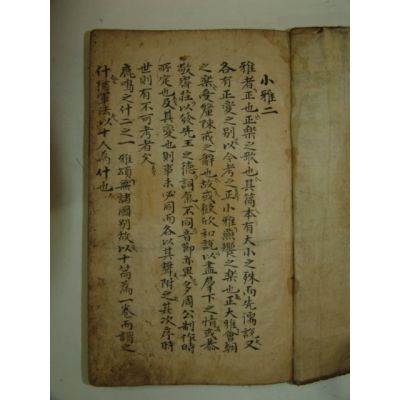 小雅二
雅者正也正樂之歌也其篇本有大小之殊而先儒說又
各有正變之別以今考之正小雅燕饗之樂也正大雅會朝
之樂受釐陳戒之辭也故或歡欣和說以盡羣下之情或恭
敬齊莊以發先王之德詞氣不同音節亦異多周公制作時
所定也及其變也則事未必同而各以其聲附之其次序時
世則有不可考者矣
鹿鳴之什二之一 雅頌無諸國別故以十篇為一卷而謂之
什猶軍法以十人為什也